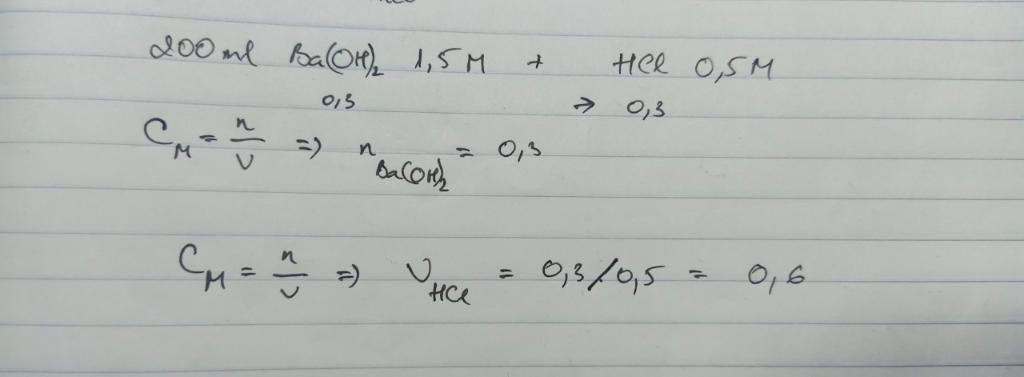 200 ml Ba(OH)₂ 1,5 M + HCl 0,5 M
0,3 => 0,3
C_M = n/V => n_Ba(OH)₂ = 0,3
C_M = n/V => V_HCl = 0,3/0,5 = 0,6